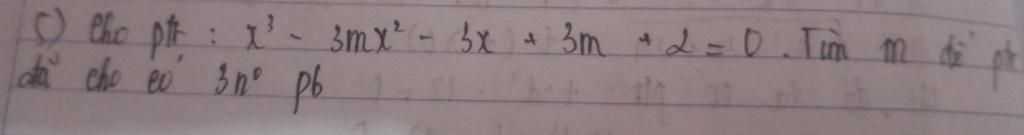 c) cho ptr : x³ - 3mx² - 3x + 3m + 2 = 0 . Tìm m để ptr
đã cho có 3n⁰ pb